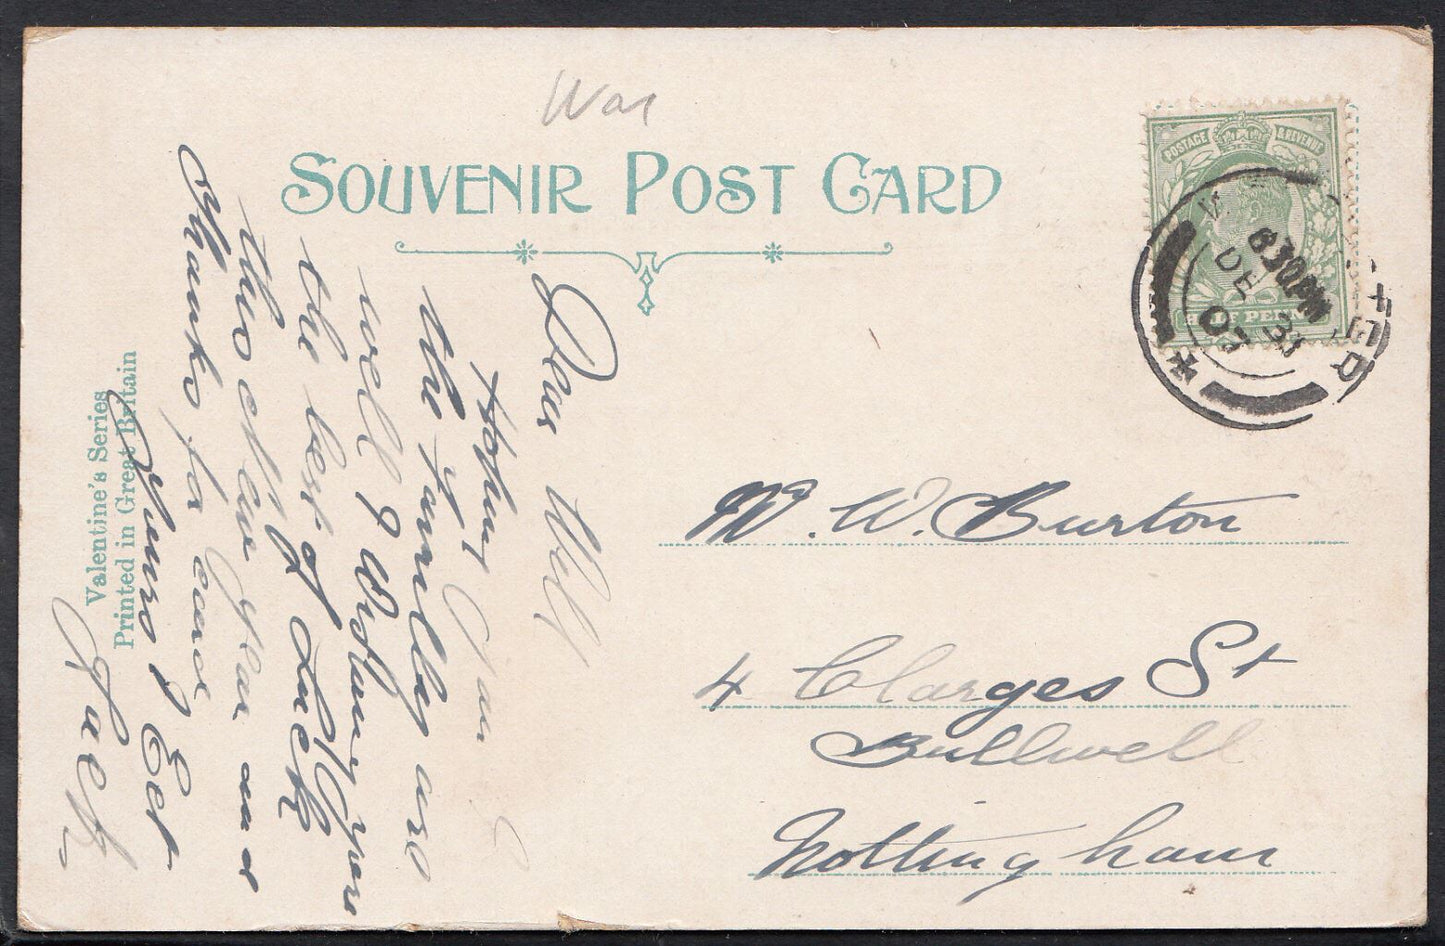 War
SOUVENIR POST CARD
POSTAGE & REVENUE
HALF PENNY
8 30 PM
DE 31
07
Valentine's Series
Printed in Great Britain
Dear Will
Hoping you &
the family are
well & Wishing you
the best of Luck
this New Year and
thanks for card
Yours Ect
Jack
Mr. W. Burton
4 Clarges St
Bullwell
Nottingham